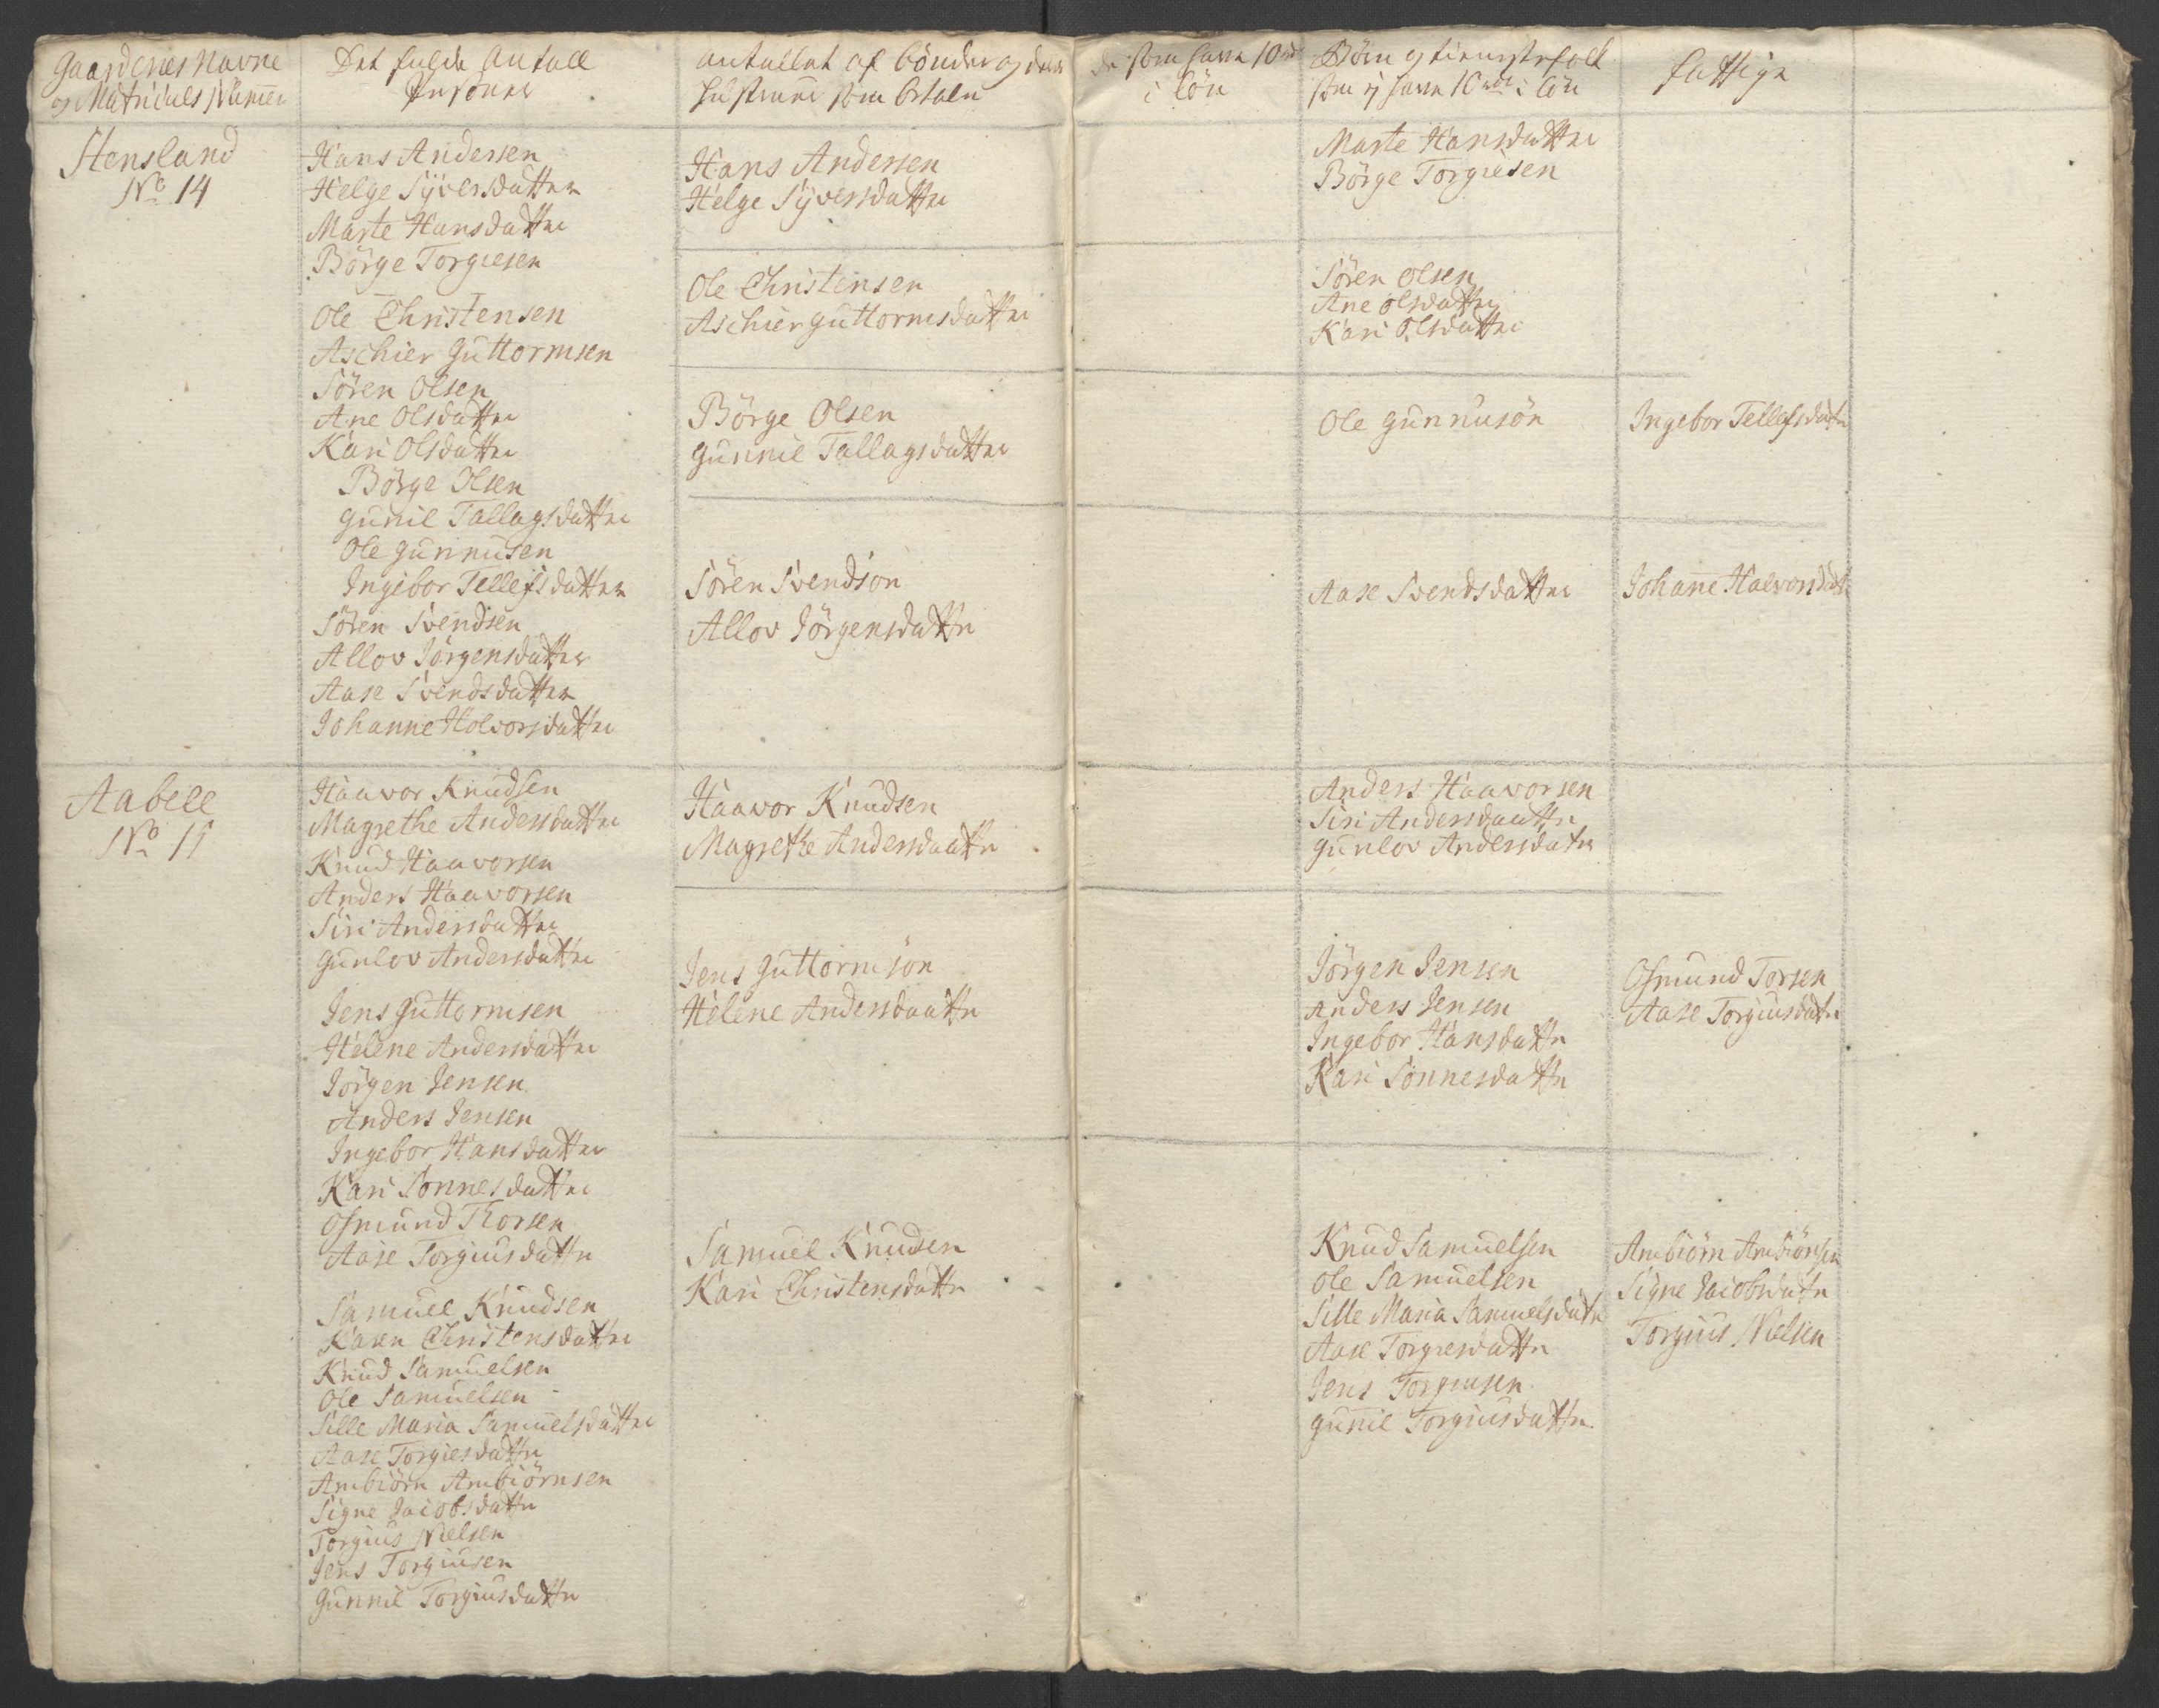 Gaardenes Navne
og Matriculs Numer
Det fulde Antall
Personer
antallet af bönder og deres
hustruer som betaler
de som have 10 rd
i lön
Börn og tienistefolk
som ej have 10 rdr i lön
fattige
Stensland
No 14
Hans Andersen
Helge Syversdatter
Marte Hansdatter
Börge Torgiesen
Ole Christensen
Aschier Guttormsen
Sören Olsen
Ane Olsdatter
Kari Olsdatter
Börge Olsen
Gunil Tallagsdatter
Ole Gunnusen
Ingebor Tellefsdatter
Sören Svendsen
Allov Jörgensdatter
Aase Svendsdatter
Johanne Holvorsdatter
Hans Andersen
Helge Syversdatter
Ole Christensen
Aschier Guttormsdatter
Börge Olsen
Gunnil Tallagsdatter
Sören Svendson
Allov Jörgensdatter
Marte Hansdatter
Börge Torgiesen
Sören Olsen
Ane Olsdatter
Kari Olsdatter
Ole Gunnusön
Aase Svendsdatter
Ingebor Tellefsdatr
Johane Halvorsdatr
Aabell
No 15
Haavor Knudsen
Magrethe Andersdatter
Knud Haavorsen
Anders Haavorsen
Siri Andersdatter
Gunlov Andersdatter
Jens Guttormsen
Helene Andersdatter
Jörgen Jensen
Anders Jensen
Ingebor Hansdatter
Kari Sonnesdatter
Osmund Thorsen
Aase Torgiusdattr
Samuel Knudsen
Karen Christensdatter
Knud Samuelsen
Ole Samuelsen
Sille Maria Samuelsdatter
Aase Torgiesdattr
Ambiörn Ambiörnsen
Signe Jacobsdattr
Torgius Nielsen
Jens Torgiusen
Gunnil Torgiusdattr
Haavor Knudsen
Magrethe Andersdaattr
Jens Guttormsön
Helene Andersdaattr
Samuel Knudsen
Kari Christensdattr
Anders Haavorsen
Siri Andersdaattr
Gunlov Andersdatr
Jörgen Jensen
Anders Jensen
Ingebor Hansdattr
Kari Sonnesdattr
Knud Samuelsen
Ole Samuelsen
Sille Maria Samuelsdatr
Aase Torgiesdattr
Jens Torgiusen
Gunil Torgiusdattr
Osmund Torsen
Aase Torgiusdatr
Ambiörn Ambiörnsen
Signe Jacobsdatr
Torgius Nielsen